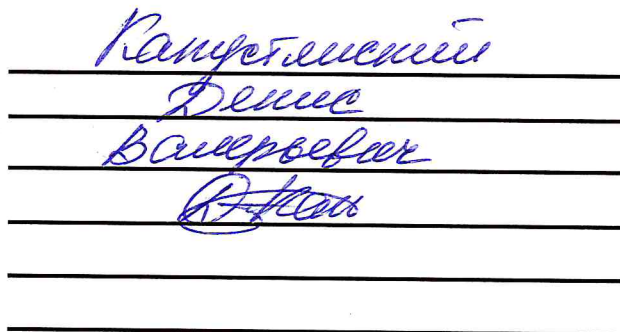 Капустянский
Денис
Валерьевич